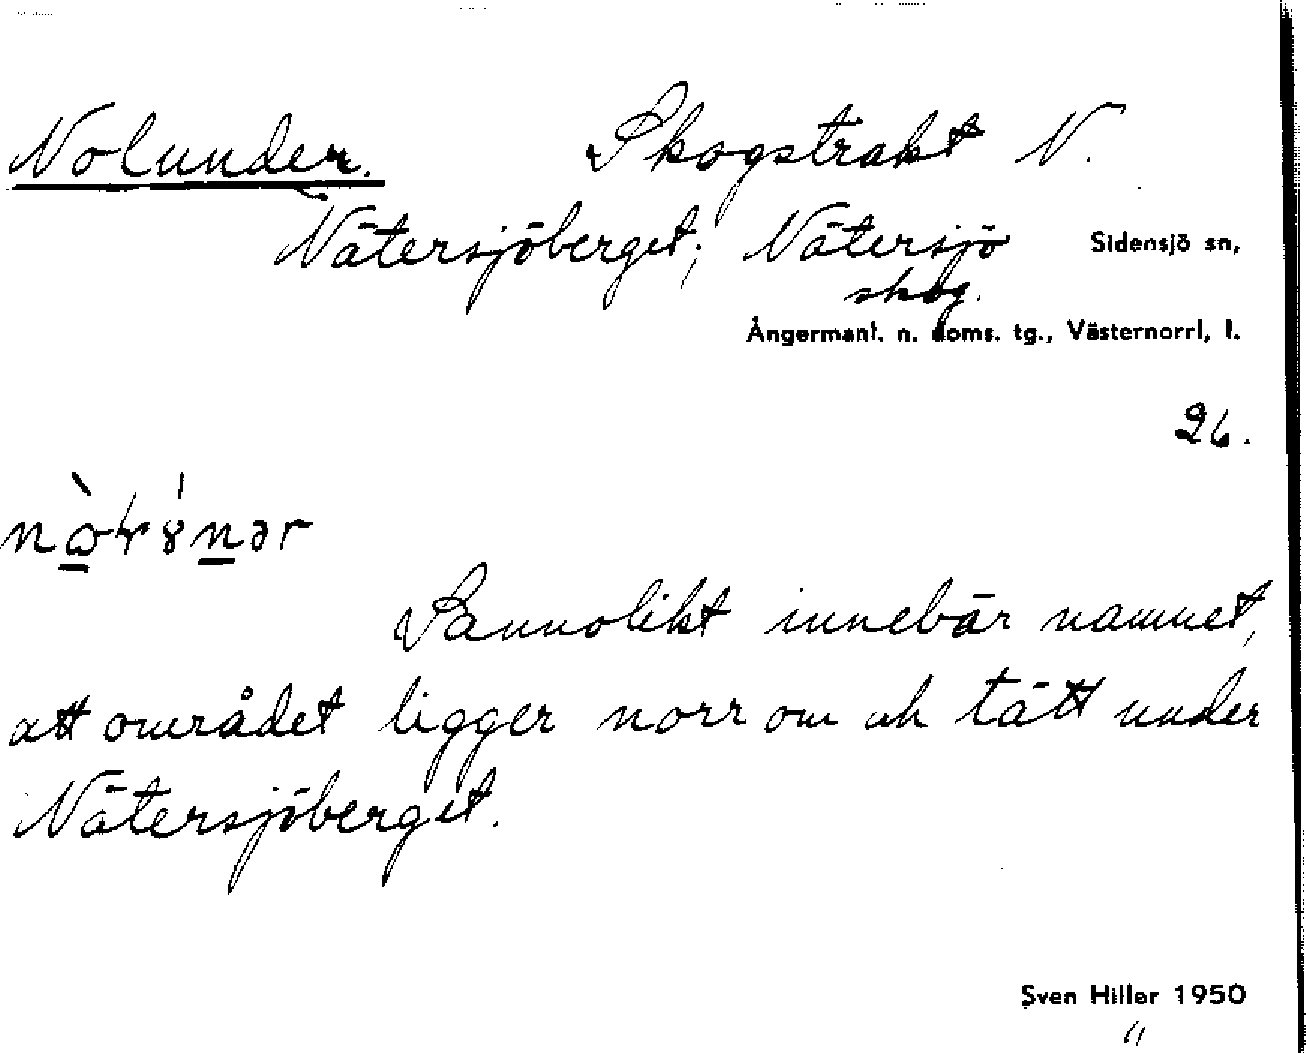 Nolunder. Skogstrakt N.
Nätersjöberget; Nätersjö Sidensjö sn,
skog.
Ångermanl. n. doms. tg., Västernorrl, l.
26.
Sannolikt innebär namnet,
att området ligger norr om och tätt under
Nätersjöberget.
Sven Hiller 1950
"